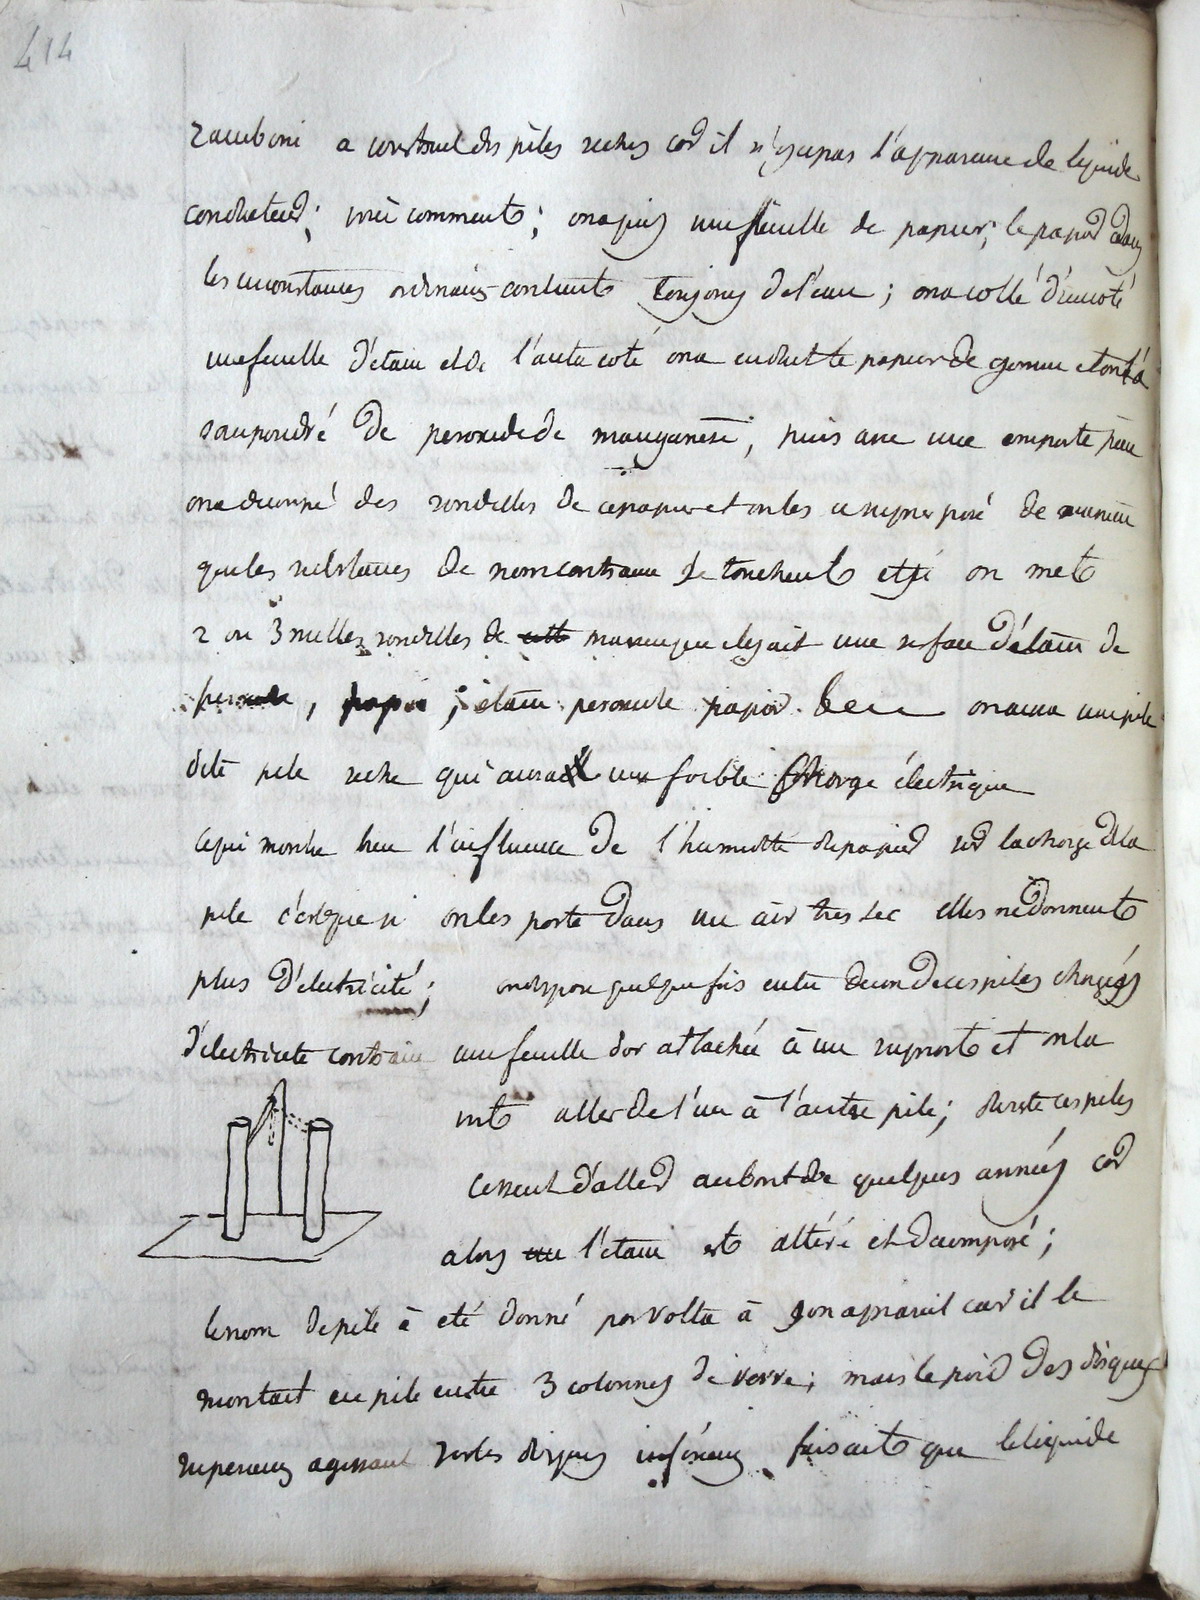 414
zamboni a construit des piles seches car il n'y a pas l'apparence de liquide
conducteur; voici comment; on a pris une feuille de papier; le papier dans
les circonstances ordinaires contient toujours de l'eau; on a collé d'un coté
une feuille d'étain et de l'autre coté on a enduit le papier de gomme et on l'a
saupoudré de peroxide de manganese, puis avec une emporte piece
on a decoupé des rondelles de ce papier et on les a superposé de maniere
que les substances de nom contraire se touchent et si on met
2 ou 3 milles rondelles de maniere que il y ait une surface d'étain de
peroxide, papier; étain peroxide papier on aura une pile
dite pile seche qui aura une foible charge électrique
ce qui montre bien l'influence de l'humidité du papier sur la charge de la
pile c'est que si on les porte dans un air tres sec elles ne donnent
plus d'électricité; on dispose quelquefois entre deux de ces piles chargées
d'électricité contraire une feuille d'or attachée à un support et on la
voit aller de l'un à l'autre pile; du reste ces piles
cessent d'aller au bout de quelques années car
alors l'étain est altéré et decomposé;
le nom de pile à eté donné par volta à son apareil car il le
montait en pile entre 3 colonnes de verre; mais le poid des disques
superieurs agissant sur les disques inférieurs faisait que le liquide